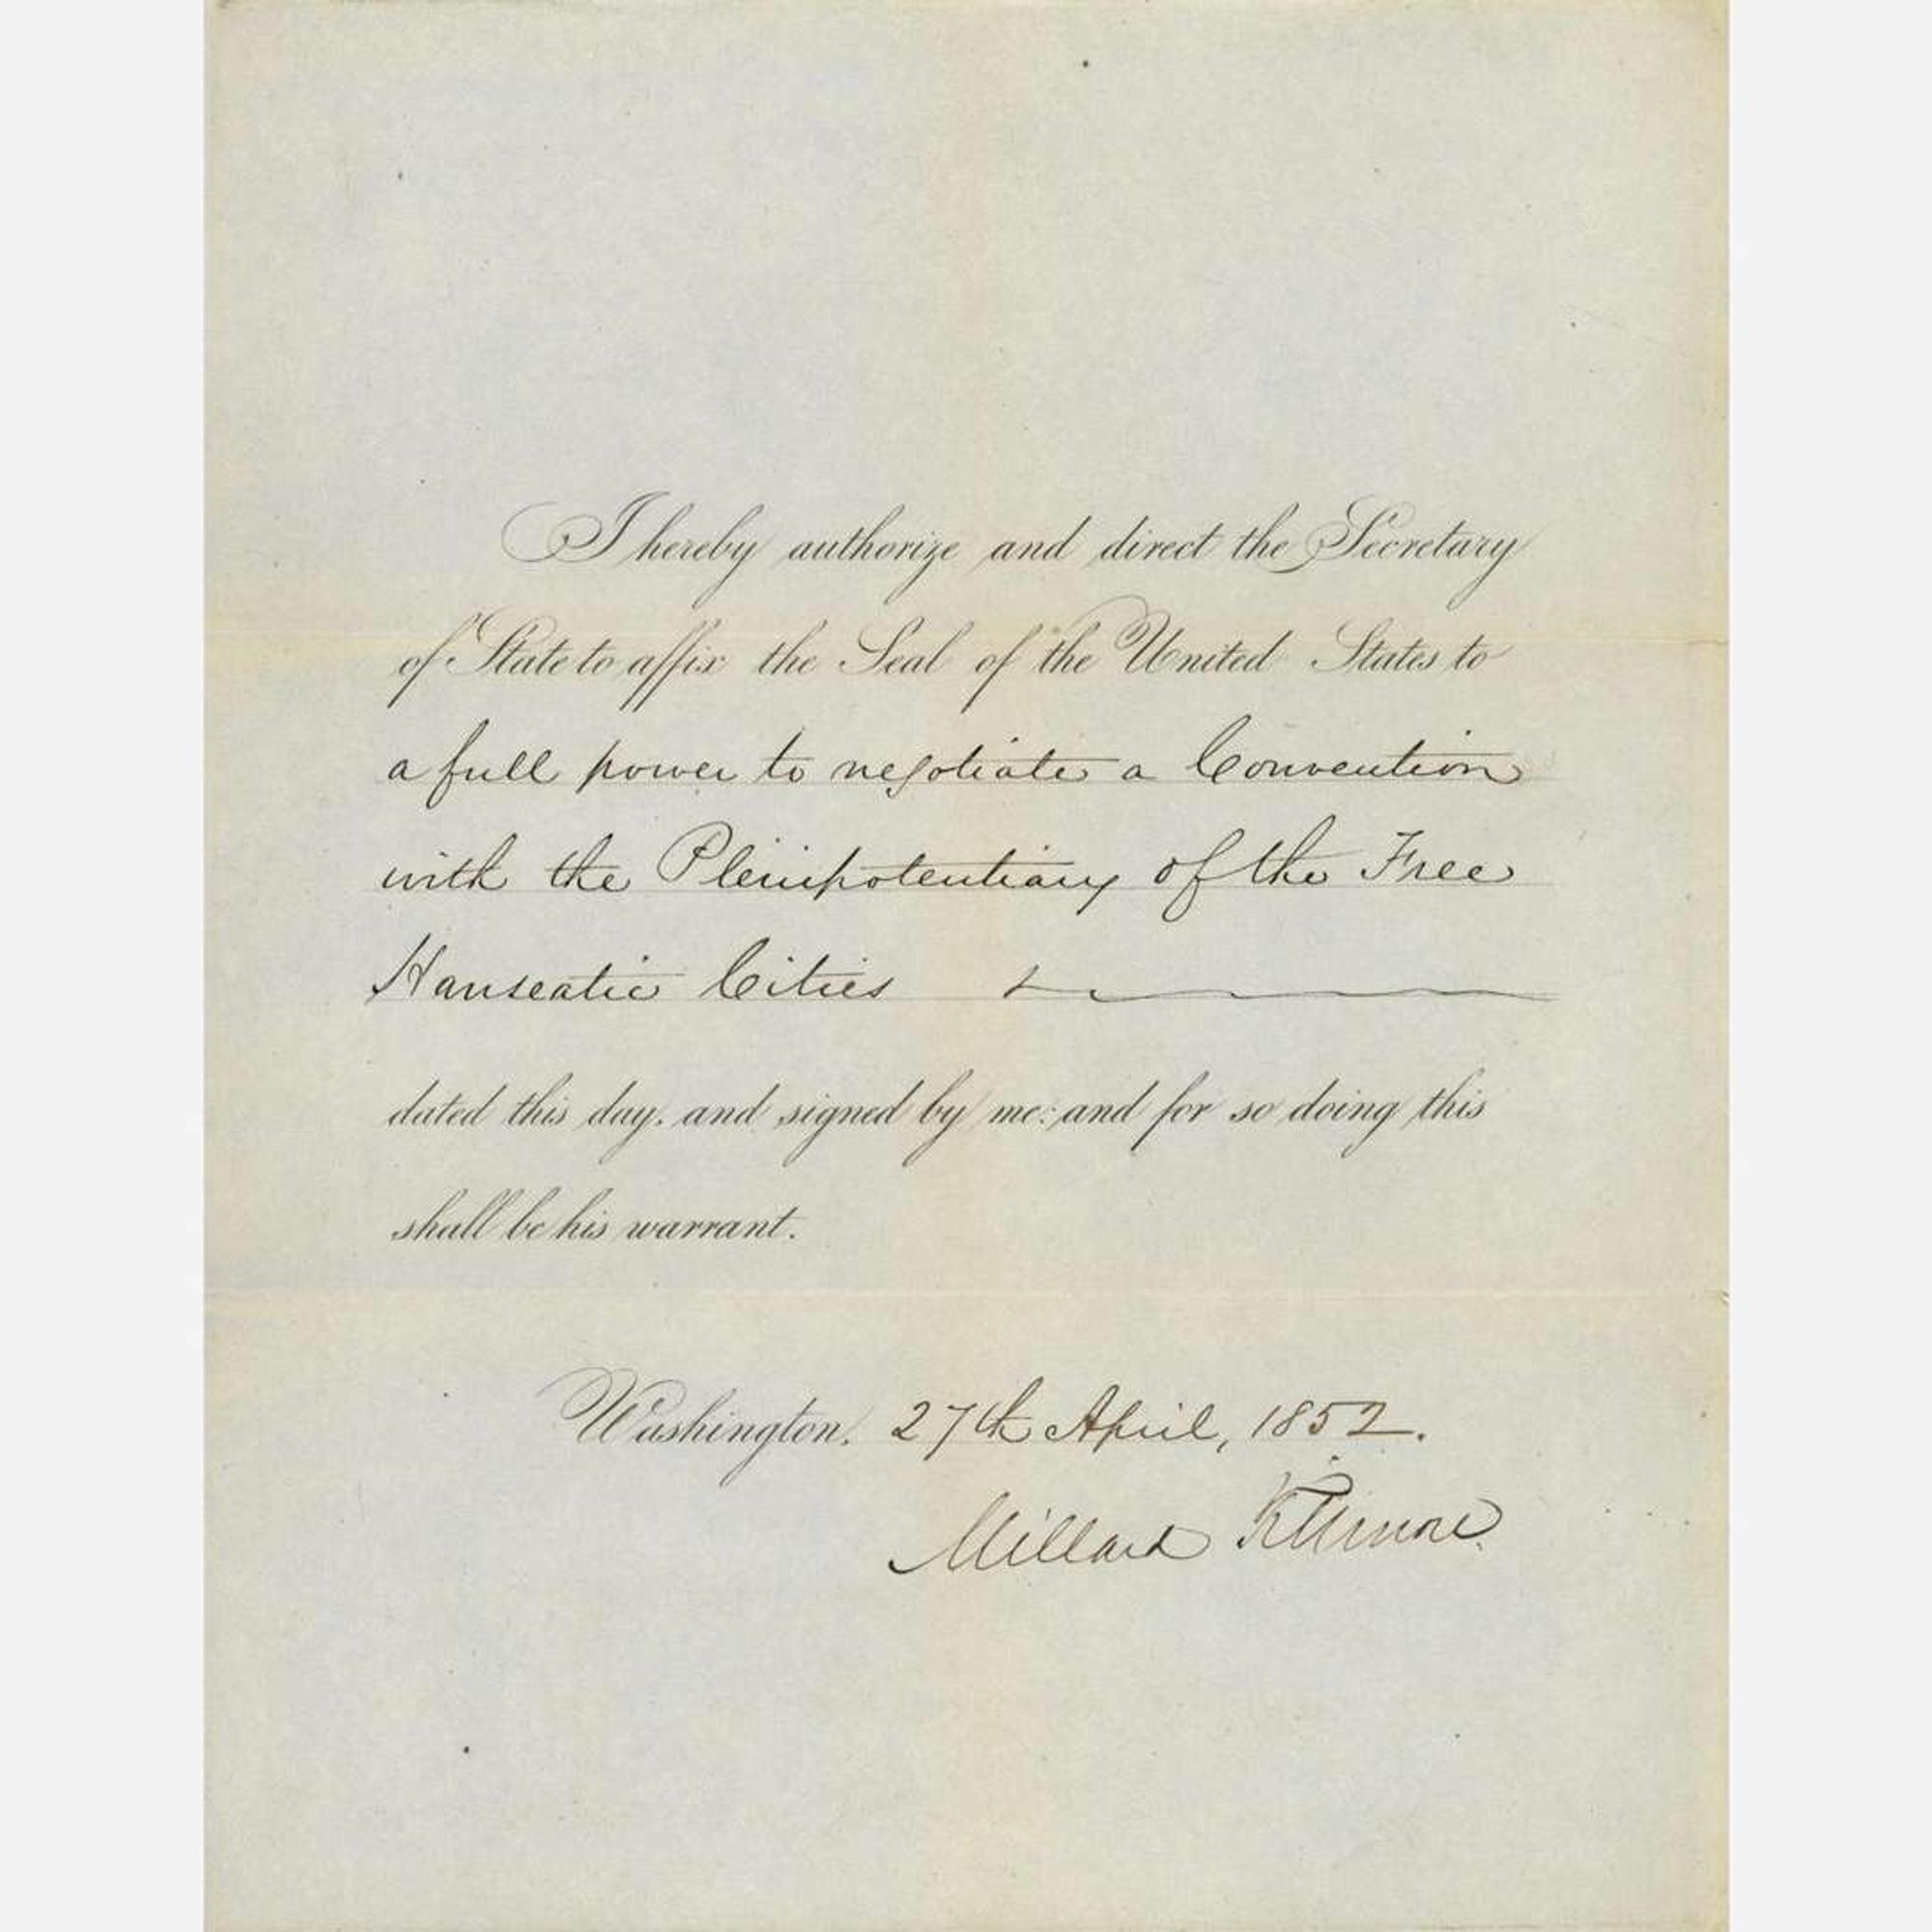 I hereby authorize and direct the Secretary
of State to affix the Seal of the United States to
a full power to negotiate a Convention
with the Plenipotentiary of the Free
Hanseatic Cities
dated this day, and signed by me: and for so doing this
shall be his warrant.
Washington, 27th April, 1852.
Millard Fillmore